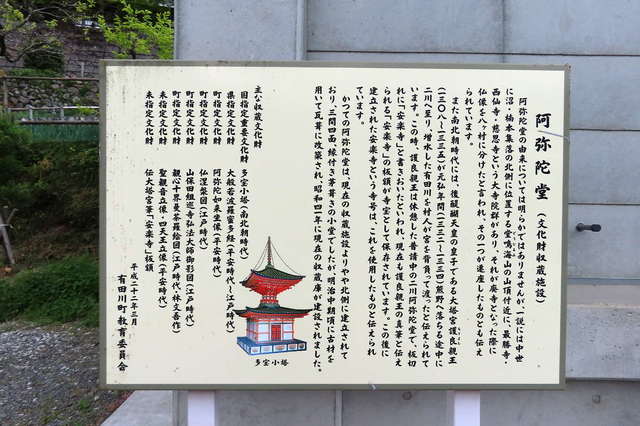 阿弥陀堂（文化財収蔵施設）
阿弥陀堂の由来については明らかではありませんが、一説には中世
に沼・楠本集落の北側に位置する堂鳴海山の山頂付近に、最勝寺・
西仙寺・慈恩寺という大寺院群があり、それが廃寺となった際に
仏像を八ヶ村に分けたと言われ、その一つが遷座したものとも伝え
られています。
また南北朝時代には、後醍醐天皇の皇子である大塔宮護良親王
(一三〇八〜一三三五)が元弘年間(一三三一〜一三三四)熊野へ落ちる途中に
二川へ至り、増水した有田川を村人が宮を背負って渡ったと伝えられて
います。この時、護良親王は休憩した普請中の二川阿弥陀堂で、板切
れに「安楽寺」と書きおいたといわれ、現在も護良親王の真筆と伝え
られる「安楽寺」の板額が寺宝として保存されています。この後に
建立された安楽寺という寺号は、これを使用したものと伝えられ
ています。
かつての阿弥陀堂は、現在の収蔵施設よりやや北側に建立されて
おり、三間四面、縁付き茅葺きの小堂でしたが、明治中期頃に古材を
用いて瓦葺に改築され、昭和四一年に現在の収蔵庫が建設されました。
多宝小塔
主な収蔵文化財
国指定重要文化財 多宝小塔(南北朝時代)
県指定文化財 大般若波羅蜜多経(平安時代〜江戸時代)
町指定文化財 阿弥陀如来坐像(平安時代)
町指定文化財 仏涅槃図(江戸時代)
町指定文化財 山保田組巡寺弘法大師御影図(江戸時代)
町指定文化財 観心十界曼荼羅絵図(江戸時代・林文春作)
未指定文化財 聖観音立像・四天王立像(平安時代)
未指定文化財 伝大塔宮筆「安楽寺」板額
平成二十二年三月
有田川町教育委員会